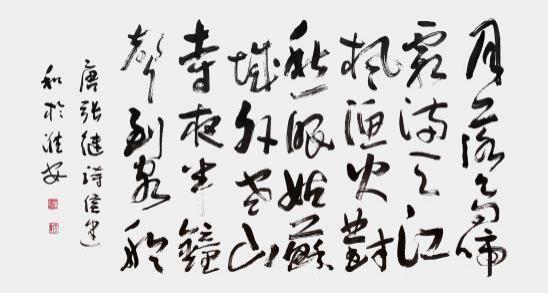 月落烏啼
霜滿天江
楓漁火對
愁眠姑蘇
城外寒山
寺夜半鐘
聲到客船
唐張繼詩侯
和於淮安